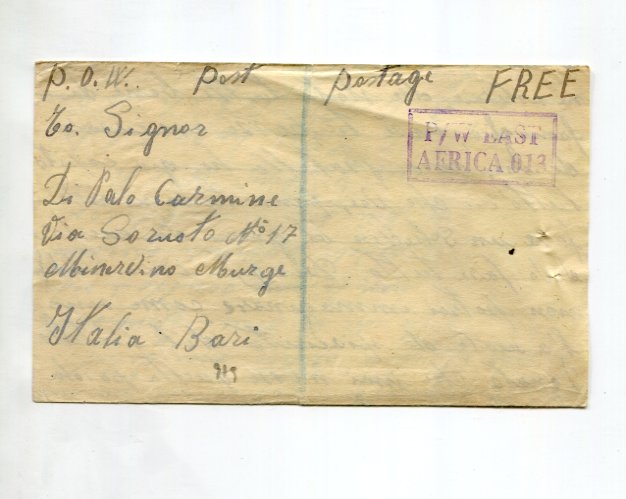 P.O.W. Post Postage FREE
To. Signor
P/W EAST
AFRICA 013
Di Palo Carmine
Via Soruoto Nº 17
Minervino Murge
Italia Bari